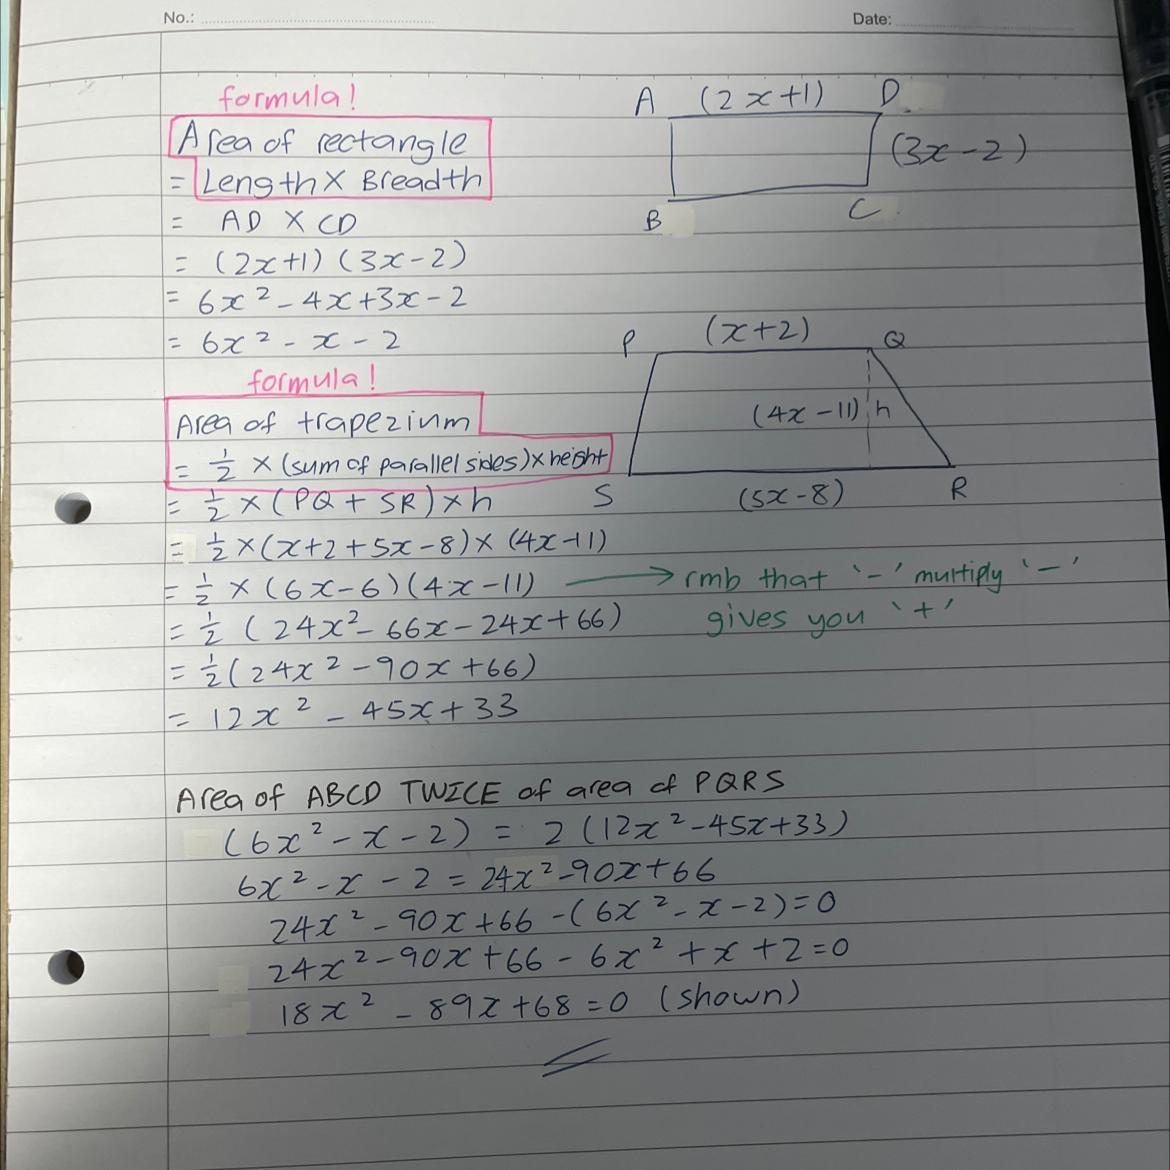 No.: Date:
formula!
Area of rectangle
= Length × Breadth
= AD × CD
= (2x+1)(3x-2)
= 6x² - 4x + 3x - 2
= 6x² - x - 2
A (2x+1) D
(3x-2)
B C
formula!
Area of trapezium
= ½ × (sum of parallel sides) × height
= ½ × (PQ + SR) × h
= ½ × (x+2+5x-8) × (4x-11)
= ½ × (6x-6)(4x-11) → rmb that '-' multiply '-'
gives you '+'
= ½ (24x² - 66x - 24x + 66)
= ½ (24x² - 90x + 66)
= 12x² - 45x + 33
P (x+2) Q
(4x-11) h
S (5x-8) R
Area of ABCD TWICE of area of PQRS
(6x² - x - 2) = 2(12x² - 45x + 33)
6x² - x - 2 = 24x² - 90x + 66
24x² - 90x + 66 - (6x² - x - 2) = 0
24x² - 90x + 66 - 6x² + x + 2 = 0
18x² - 89x + 68 = 0 (shown)